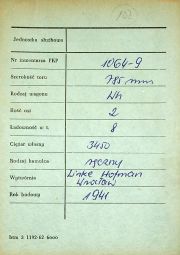 Jednostka służbowa
Nr inwentarza PKP 1064-9
Szerokość toru 785 mm
Rodzaj wagonu Wh
Ilość osi 2
Ładowność w t. 8
Ciężar własny 3450
Rodzaj hamulca ręczny
Wytwórnia Linke Hofman Wrocław
Rok budowy 1941